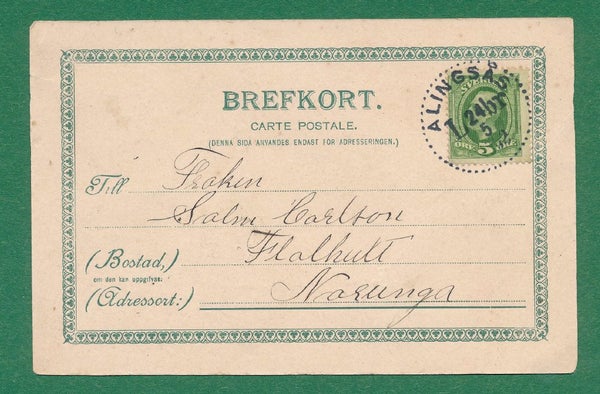 BREFKORT.
CARTE POSTALE.
(DENNA SIDA ANVÄNDES ENDAST FÖR ADRESSERINGEN.)
ALINGSÅS
24
5
5 ÖRE
Till Fröken
Salm Carlson
(Bostad,) Flolhult
om den kan uppgifvas.
(Adressort:) Narunga